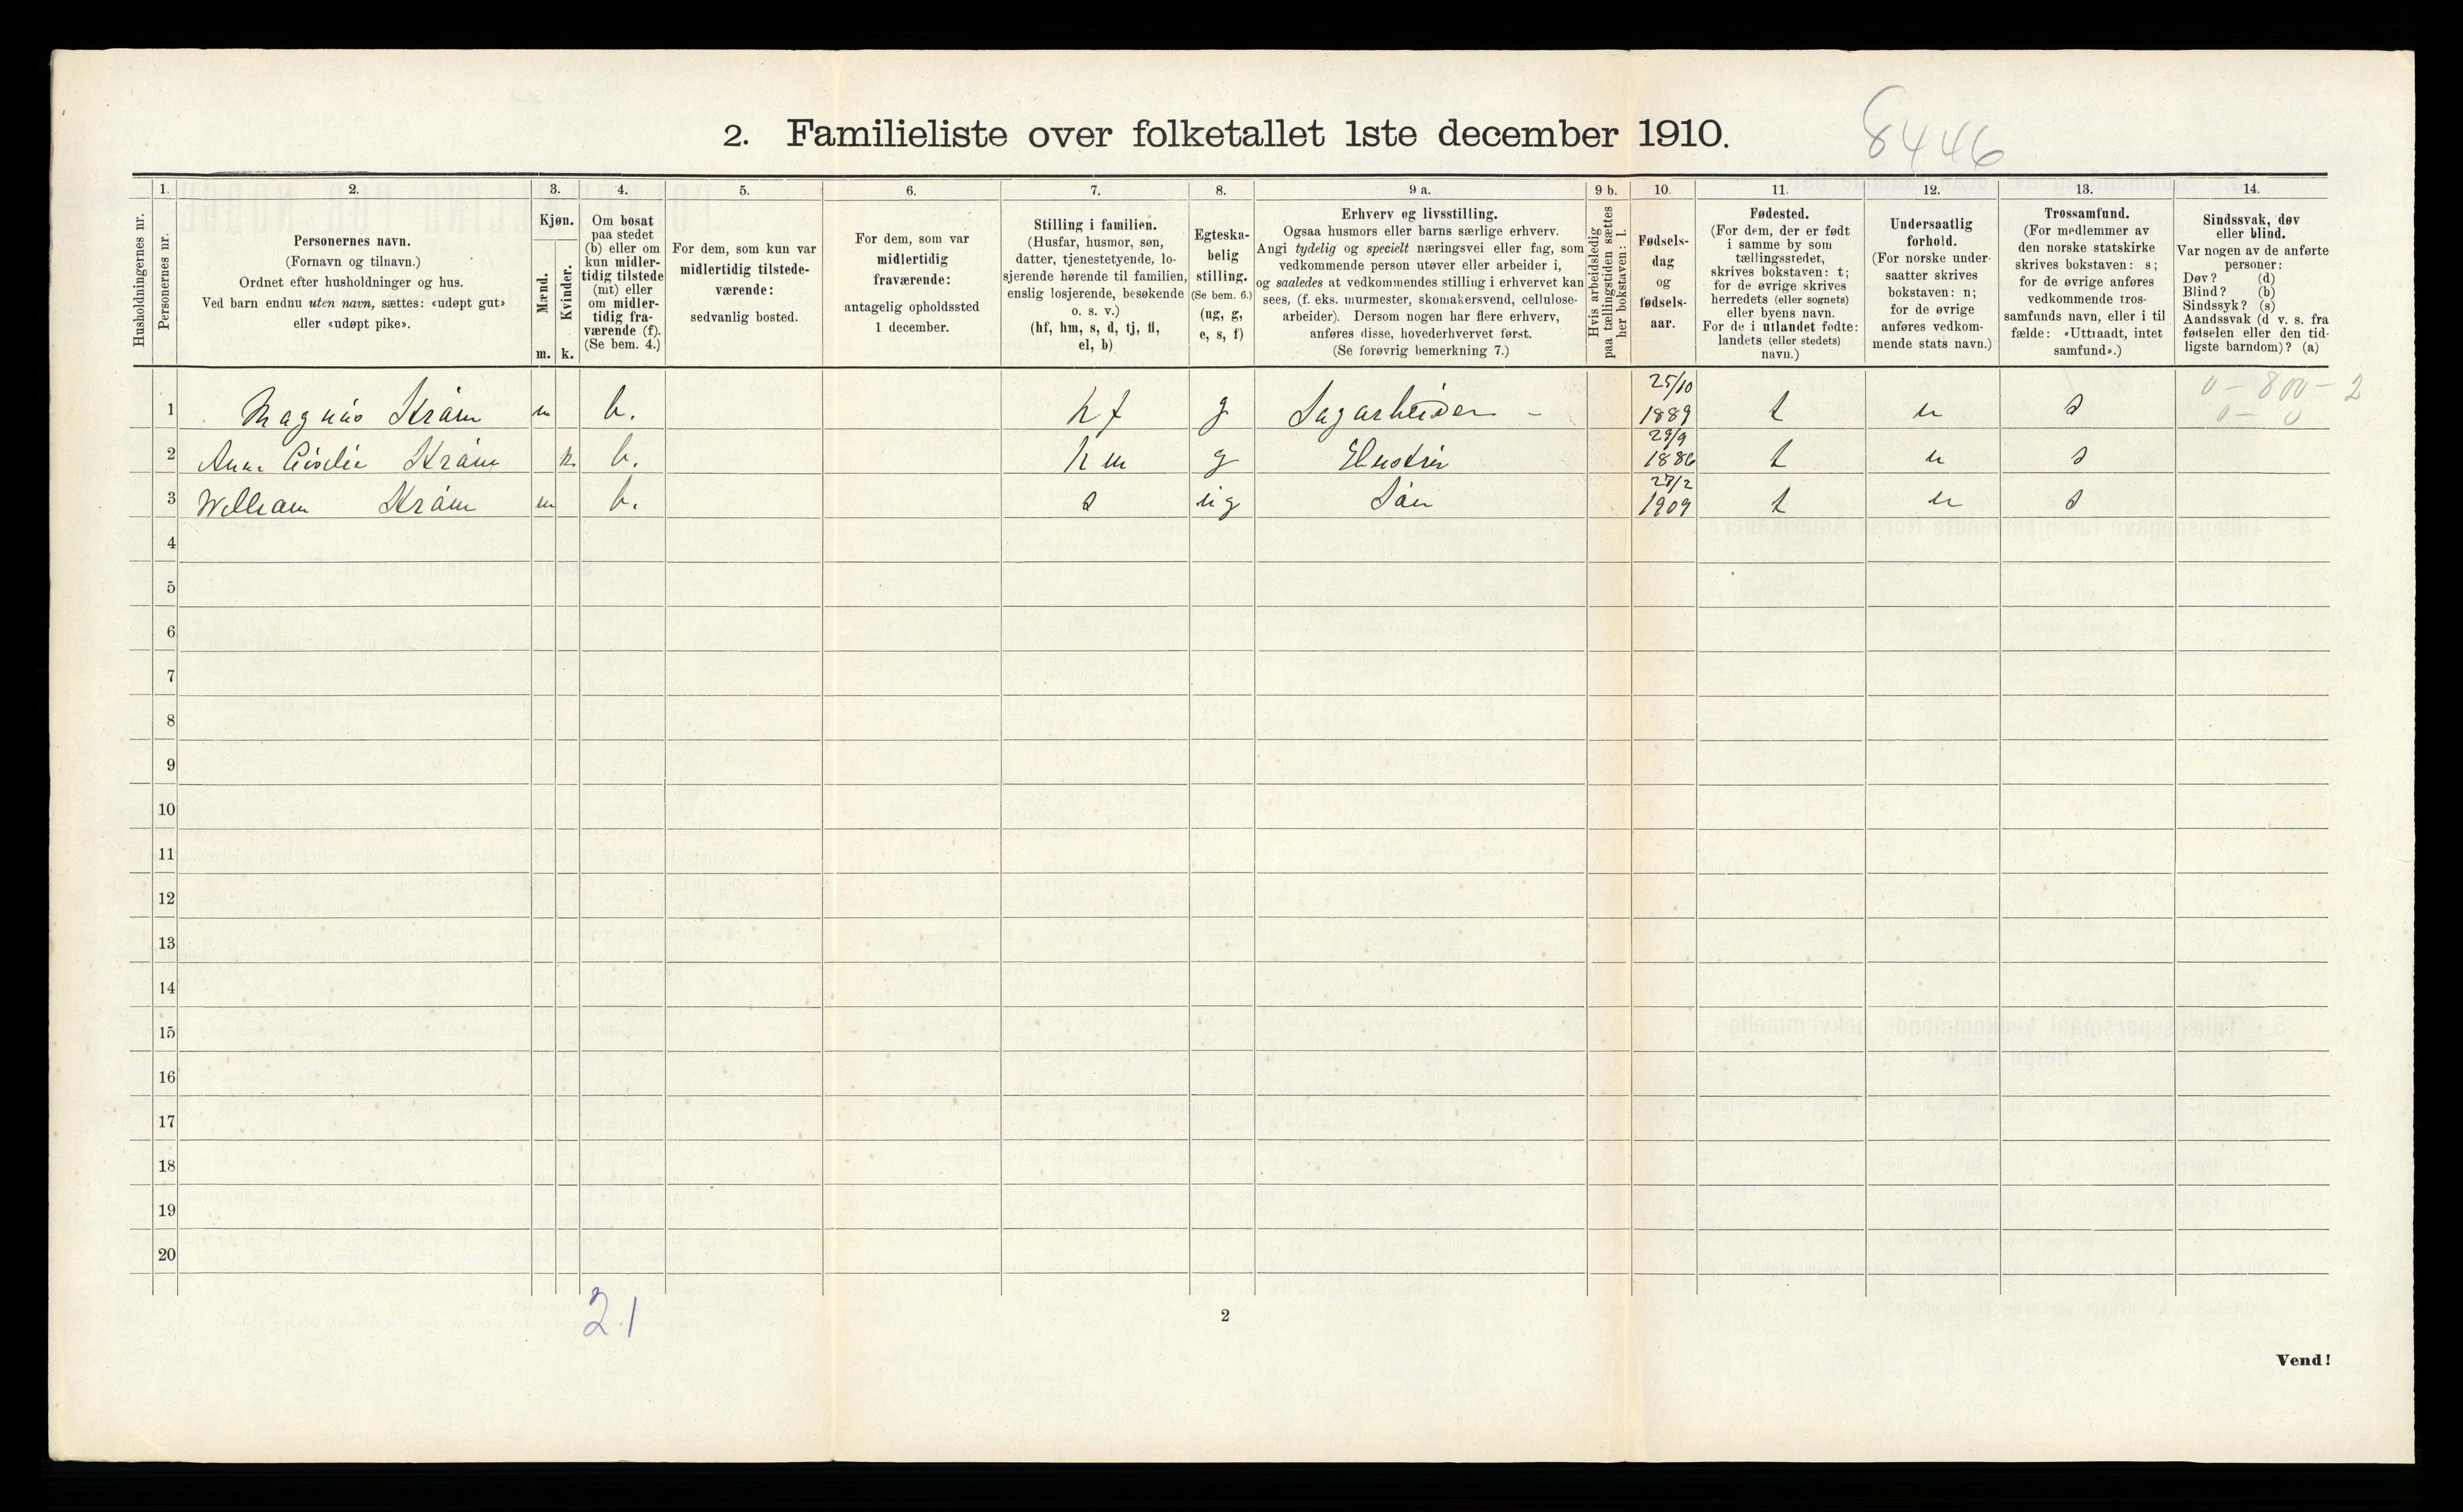 8446
2. Familieliste over folketallet 1ste december 1910.
1. 2. 3. 4. 5. 6. 7. 8. 9 a. 9 b. 10. 11. 12. 13. 14.
Husholdningernes nr.
Personernes nr.
Personernes navn.
(Fornavn og tilnavn.)
Ordnet efter husholdninger og hus.
Ved barn endnu uten navn, sættes: «udøpt gut»
eller «udøpt pike».
Kjøn.
Mænd.
Kvinder.
m. k.
Om bosat
paa stedet
(b) eller om
kun midler-
tidig tilstede
(mt) eller
om midler-
tidig fra-
værende (f).
(Se bem. 4.)
For dem, som kun var
midlertidig tilstede-
værende:
sedvanlig bosted.
For dem, som var
midlertidig
fraværende:
antagelig opholdssted
1 december.
Stilling i familien.
(Husfar, husmor, søn,
datter, tjenestetyende, lo-
sjerende hørende til familien,
enslig losjerende, besøkende
o. s. v.)
(hf, hm, s, d, tj, fl,
el, b)
Egteska-
belig
stilling.
(Se bem. 6.)
(ug, g,
e, s, f)
Erhverv og livsstilling.
Ogsaa husmors eller barns særlige erhverv.
Angi tydelig og specielt næringsvei eller fag, som
vedkommende person utøver eller arbeider i,
og saaledes at vedkommendes stilling i erhvervet kan
sees, (f. eks. murmester, skomakersvend, cellulose-
arbeider). Dersom nogen har flere erhverv,
anføres disse, hovederhvervet først.
(Se forøvrig bemerkning 7.)
Hvis arbeidsledig
paa tællingstiden sættes
her bokstaven: l.
Fødsels-
dag
og
fødsels-
aar.
Fødested.
(For dem, der er født
i samme by som
tællingsstedet,
skrives bokstaven: t;
for de øvrige skrives
herredets (eller sognets)
eller byens navn.
For de i utlandet fødte:
landets (eller stedets)
navn.)
Undersaatlig
forhold.
(For norske under-
saatter skrives
bokstaven: n;
for de øvrige
anføres vedkom-
mende stats navn.)
Trossamfund.
(For medlemmer av
den norske statskirke
skrives bokstaven: s;
for de øvrige anføres
vedkommende tros-
samfunds navn, eller i til
fælde: «Uttraadt, intet
samfund».)
Sindssvak, døv
eller blind.
Var nogen av de anførte
personer:
Døv? (d)
Blind? (b)
Sindssyk? (s)
Aandssvak (d v. s. fra
fødselen eller den tid-
ligste barndom)? (a)
25/10 0 - 800 - 2
1 Magnus Strøm m b. hf g Sagarbeider - 1889 t n s 0 - 0
29/9
2 Strøm k b. hm g Hustru 1886 t n s
27/2
3 William Strøm m b. s ug Søn 1909 t n s
4
5
6
7
8
9
10
11
12
13
14
15
16
17
18
19
20
21
2
Vend!